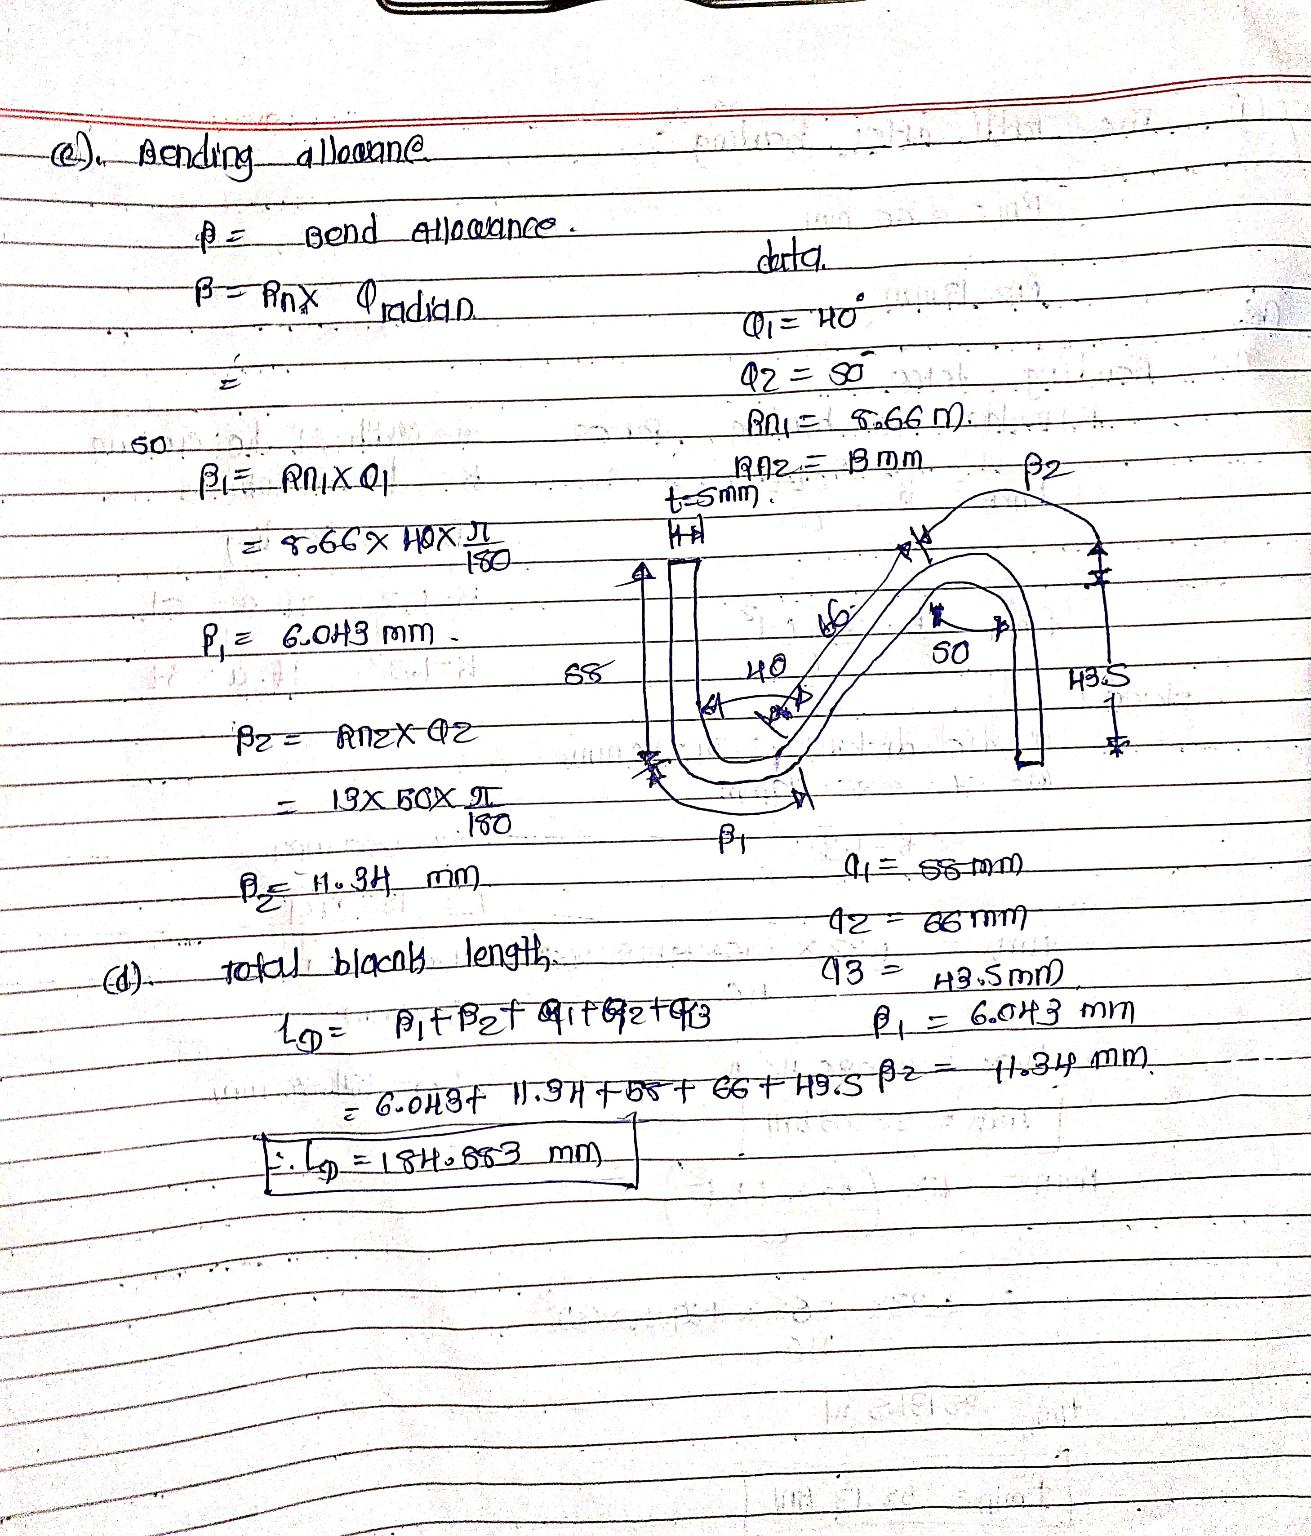 (c). Bending allowanc
β = Bend allowance.
β = Rn x Φradian
=
so
β1 = Rn1 x Φ1
= 8.66 x 40 x π/180
β1 = 6.043 mm.
β2 = Rn2 x Φ2
= 13 x 50 x π/180
β2 = 11.34 mm
data.
Φ1 = 40°
Φ2 = 50°
Rn1 = 8.66 m.
Rn2 = 13 mm
t=5mm.
β2
66
58
40
50
43.5
β1
q1 = 58 mm
q2 = 66 mm
q3 = 43.5 mm
β1 = 6.043 mm
β2 = 11.34 mm.
(d). total blacnk length.
LD = β1 + β2 + q1 + q2 + q3
= 6.043 + 11.34 + 58 + 66 + 43.5
∴ LD = 184.883 mm